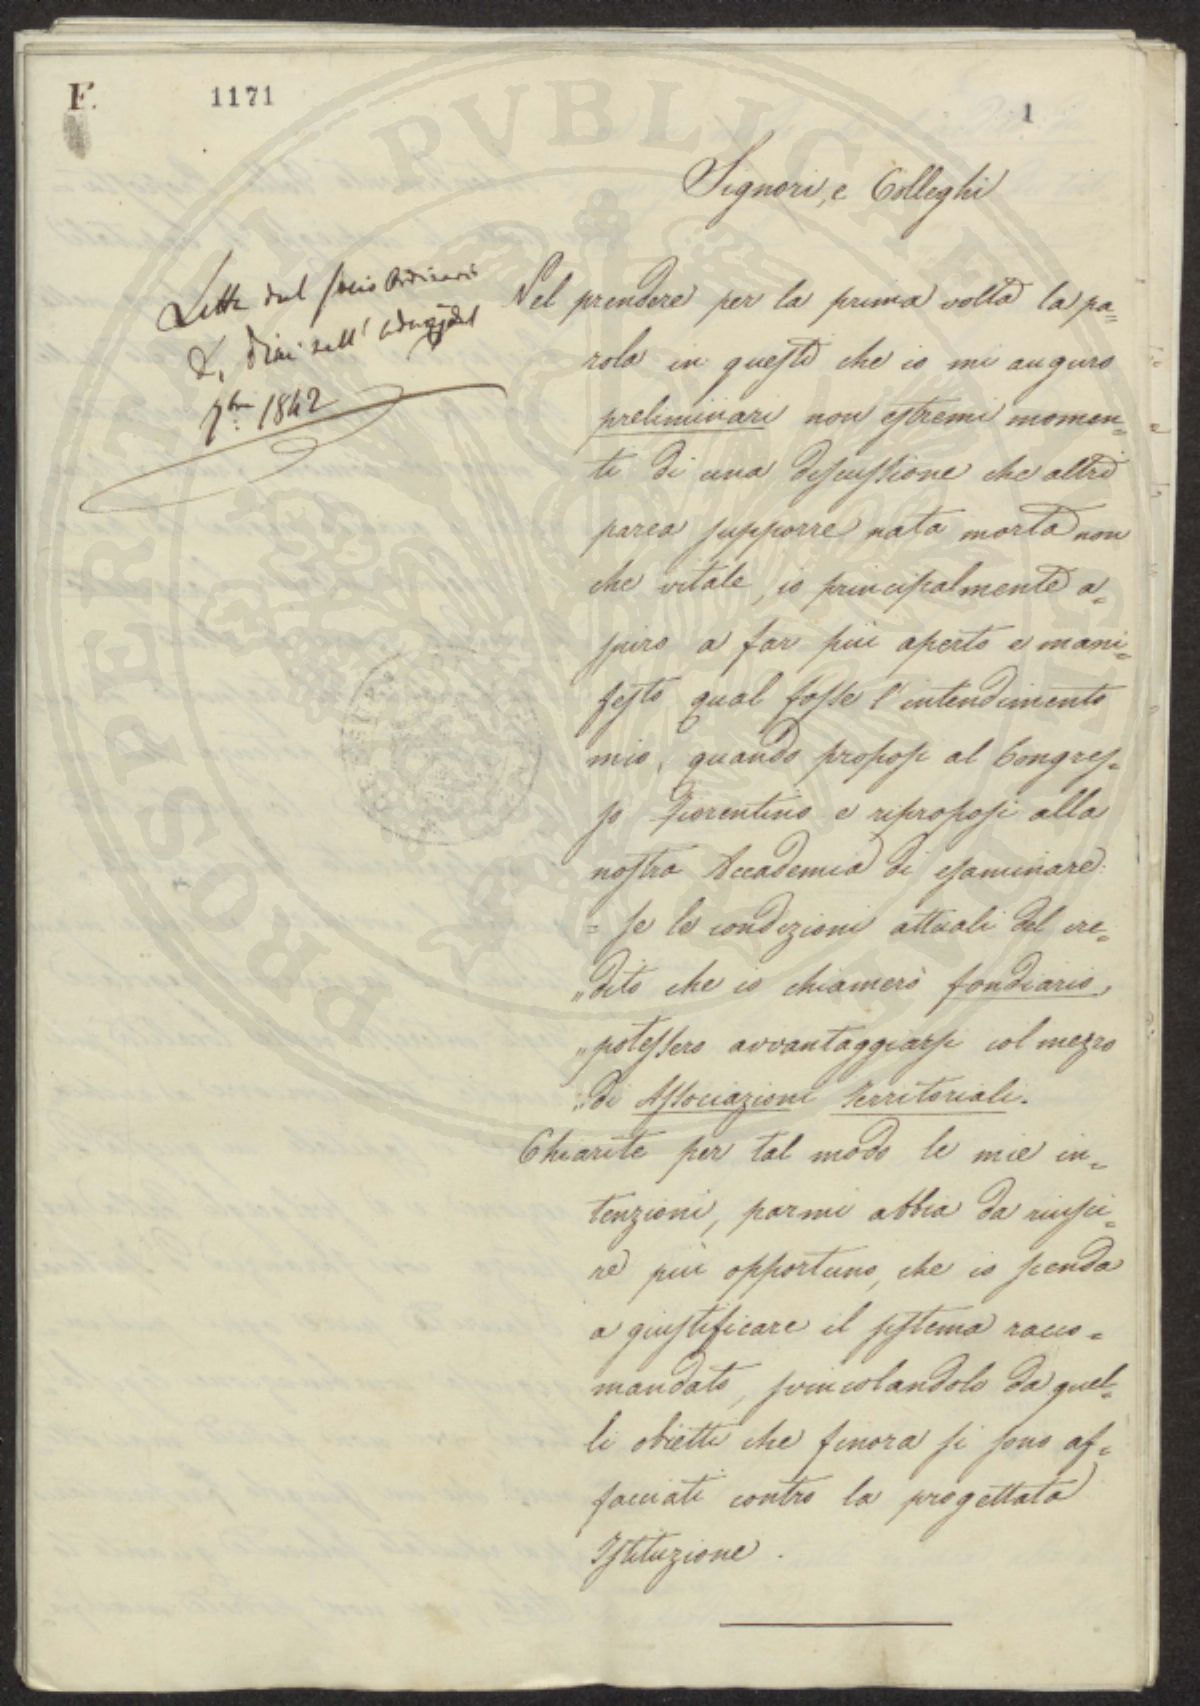 F.
1171
1
Signori, e Colleghi
Letta dal socio Ordinario
L. Dini nell'adunza del
7bre 1842
Nel prendere per la prima volta la pa=
rola in questi che io mi auguro
preliminari non estremi momen=
ti di una discussione che altri
parea supporre nata morta non
che vitale, io principalmente a=
spiro a far più aperto e mani=
festo qual fosse l'intendimento
mio, quando proposi al Congres=
so Fiorentino e riproposi alla
nostra Accademia di esaminare:
= se le condizioni attuali del cre=
„dito che io chiamerò fondiario,
„potessero avvantaggiarsi col mezzo
„di Associazioni Territoriali.
Chiarite per tal modo le mie in=
tenzioni, parmi abbia da riusci=
re più opportuno, che io scenda
a giustificare il sistema racco=
mandato, svincolandolo da quel=
li obietti che finora si sono af=
facciati contro la progettata
Istituzione.
PROSPERITATI PVBLICAE